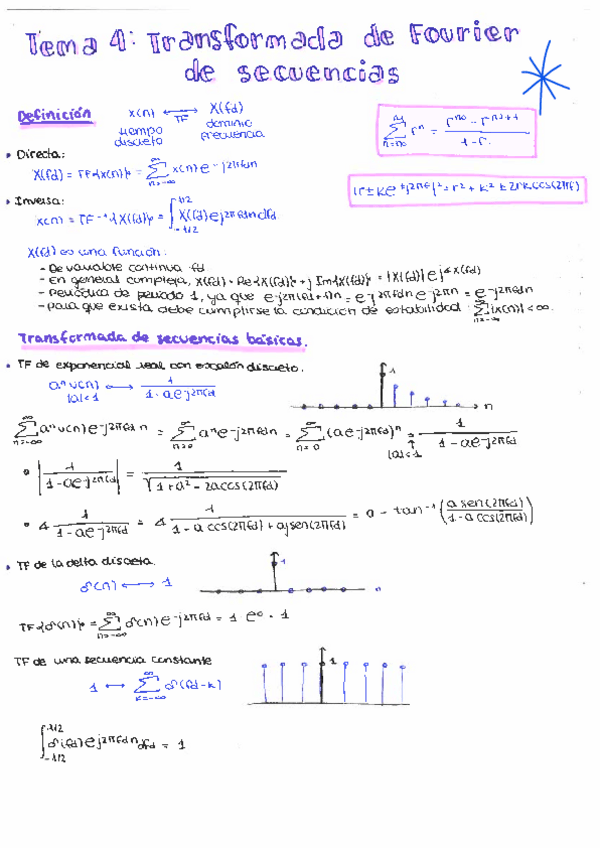 Tema 4: Transformada de Fourier
de secuencias
Definición
x(n) ⟷ X(fd)
TF
tiempo discreto
dominio frecuencia
∑_{n=n0}^{n1} r^n = (r^{n0} - r^{n1+1}) / (1-r)
• Directa:
X(fd) = TF{x(n)} = ∑_{n=-∞}^{∞} x(n) e^{-j2πfdn}
|r±ke^{±j2πf}|² = r² + k² ± 2rk cos(2πf)
• Inversa:
x(n) = TF^{-1}{X(fd)} = ∫_{-1/2}^{1/2} X(fd) e^{j2πfdn} dfd
X(fd) es una función:
- De variable continua fd
- En general compleja, X(fd) = Re{X(fd)} + j Im{X(fd)} = |X(fd)| e^{j∡X(fd)}
- Periódica de periodo 1, ya que e^{-j2π(fd+1)n} = e^{-j2πfdn} e^{-j2πn} = e^{-j2πfdn}
- para que exista debe cumplirse la condición de estabilidad: ∑_{n=-∞}^{∞} |x(n)| < ∞.
Transformada de secuencias básicas.
• TF de exponencial real con escalón discreto.
a^n u(n) ⟷ 1 / (1 - ae^{-j2πfd})
|a|<1
1
n
∑_{n=-∞}^{∞} a^n u(n) e^{-j2πfdn} = ∑_{n=0}^{∞} a^n e^{-j2πfdn} = ∑_{n=0}^{∞} (ae^{-j2πfd})^n = 1 / (1 - ae^{-j2πfd})
|a|<1
• |1 / (1-ae^{-j2πfd})| = 1 / √(1+a² - 2a cos(2πfd))
• ∡ 1 / (1-ae^{-j2πfd}) = ∡ 1 / (1-a cos(2πfd) + aj sen(2πfd)) = 0 - tan^{-1}(a sen(2πfd) / (1-a cos(2πfd)))
• TF de la delta discreta.
δ(n) ⟷ 1
1
n
TF{δ(n)} = ∑_{n=-∞}^{∞} δ(n) e^{-j2πfdn} = 1 e^0 = 1
TF de una secuencia constante
1 ⟷ ∑_{k=-∞}^{∞} δ(fd-k)
1
∫_{-1/2}^{1/2} δ(fd) e^{j2πfdn} dfd = 1